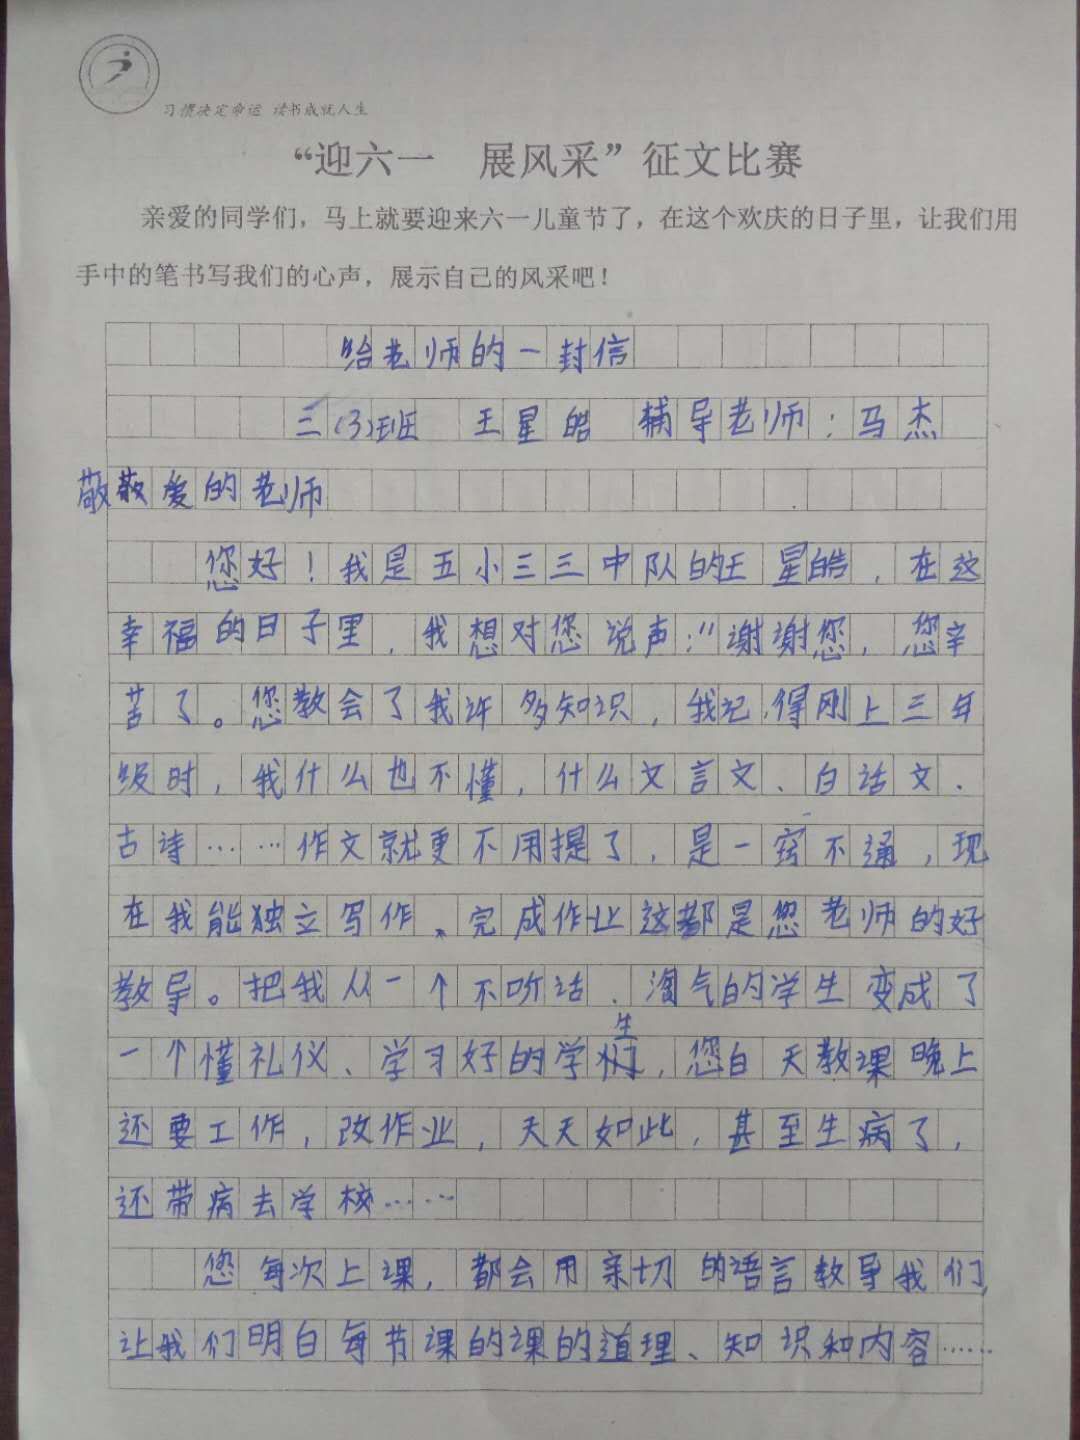 习惯决定命运 读书成就人生
“迎六一 展风采”征文比赛
亲爱的同学们，马上就要迎来六一儿童节了，在这个欢庆的日子里，让我们用
手中的笔书写我们的心声，展示自己的风采吧！
给老师的一封信
三(3)班 王星皓 辅导老师：马杰
敬敬爱的老师
您好！我是五小三三中队的王星皓，在这
幸福的日子里，我想对您说声：“谢谢您，您辛
苦了。您教会了我许多知识，我记得刚上三年
级时，我什么也不懂，什么文言文、白话文、
古诗……作文就更不用提了，是一窍不通，现
在我能独立写作、完成作让这都是您老师的好
教导。把我从一个不听话、淘气的学生变成了
一个懂礼仪、学习好的学生，您白天教课晚上
还要工作，改作业，天天如此，甚至生病了，
还带病去学校……
您每次上课，都会用亲切的语言教导我们，
让我们明白每节课的课的道理、知识和内容……